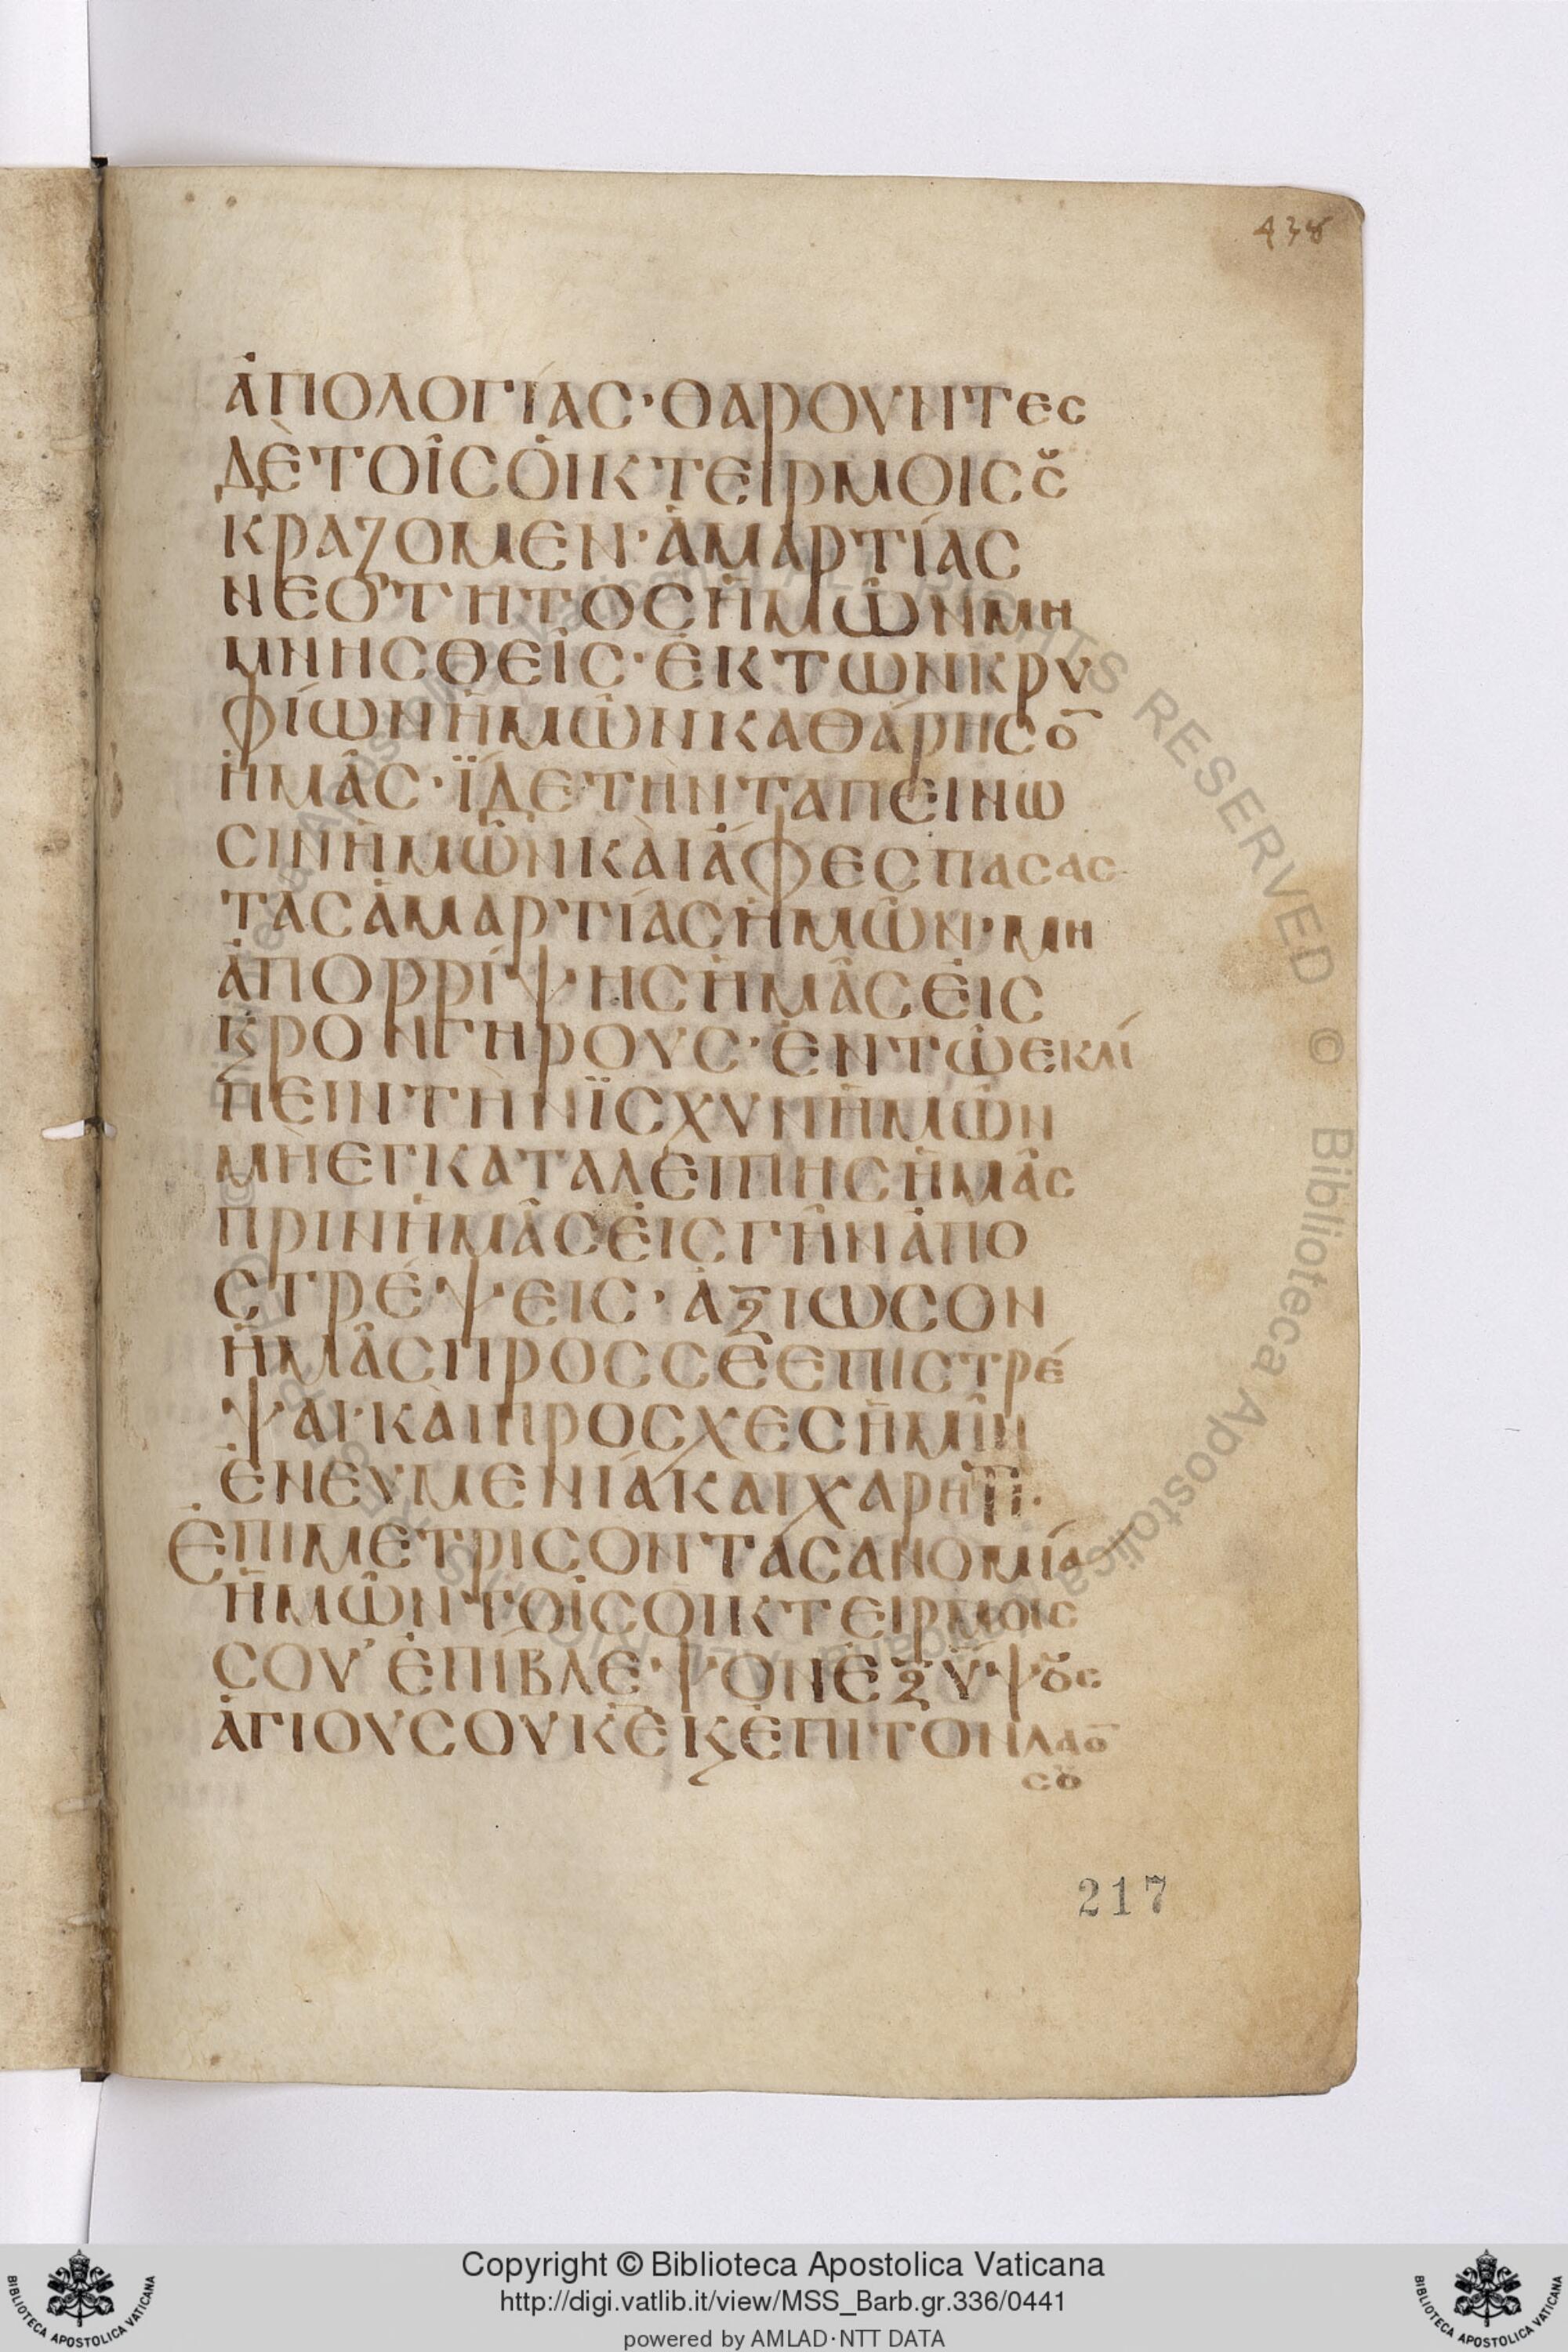 438
ἀπολογίας· θαρουντες
δὲ τοῖς ὀικτειρμοις σ̆
κραζομεν· ἁμαρτίας
νεότητος ἡμῶν μη
μνησθεὶς· ἐκ τῶν κρυ
φίων ἡμῶν καθάρησο̅
ἡμᾶς· ἴδε τὴν ταπεινω
σιν ἡμῶν κὰι ἄφες πασας
τὰς ἁμαρτίας ἡμῶν· μη
ἀπορρίψης ἡμᾶς ἐις
κ̣ρον γήρους· ἐν τῶ εκλεί
πειν τὴν ϊσχυν ἡμῶν
μὴ εγκαταλείπης ἡμᾶς
πρὶν ἡμᾶς ἐις γῆν ἀπο
στρέψεις· ἀξιωσον
ἡμᾶς προς σὲ επιστρέ
ψαι· κὰι πρόσχες ἡμῖν
ἐν ευμενιά και χαρητι·
Ἐπιμετρισον τὰς ανομία
ἡμῶν τοῖς οικτειρμοις
σου ἐπίβλεψον ἐξ ὕψȣς
ἁγιου σου κε̅ κ̣ ἐπι τὸν λαο̅
σȣ
217
Copyright © Biblioteca Apostolica Vaticana
http://digi.vatlib.it/view/MSS_Barb.gr.336/0441
powered by AMLAD·NTT DATA
BIBLIOTECA APOSTOLICA VATICANA
BIBLIOTECA APOSTOLICA VATICANA